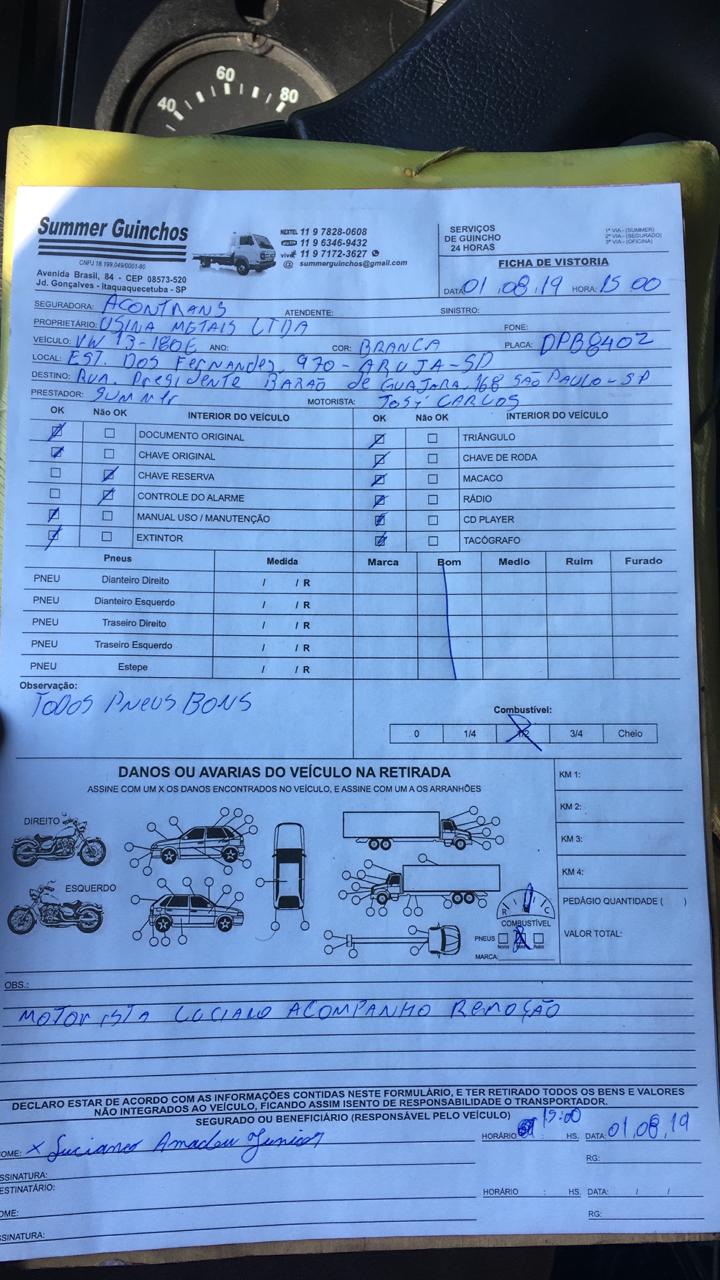 40 60 80
Summer Guinchos
CNPJ 18.199.049/0001-80
Avenida Brasil, 84 - CEP 08573-520
Jd. Gonçalves - Itaquaquecetuba - SP
NEXTEL 11 9 7828-0608
11 9 6346-9432
vivo 11 9 7172-3627
@ summerguinchos@gmail.com
SERVIÇOS
DE GUINCHO
24 HORAS
1ª VIA - (SUMMER)
2ª VIA - (SEGURADO)
3ª VIA - (OFICINA)
FICHA DE VISTORIA
DATA: 01/08/19 HORA: 15 00
SEGURADORA: ACONTRANS ATENDENTE: SINISTRO:
PROPRIETÁRIO: USINA METAIS LTDA FONE:
VEÍCULO: VW 13-180E ANO: COR: BRANCA PLACA: DPB8402
LOCAL: EST. DOS FERNANDES, 970 - ARUJA - SP
DESTINO: RUA. PresiDente BARÃO de GUAJARA, 168 SÃO PAULO - SP
PRESTADOR: SUMMER MOTORISTA: JOSÉ CARLOS
OK Não OK INTERIOR DO VEÍCULO OK Não OK INTERIOR DO VEÍCULO
DOCUMENTO ORIGINAL TRIÂNGULO
CHAVE ORIGINAL CHAVE DE RODA
CHAVE RESERVA MACACO
CONTROLE DO ALARME RÁDIO
MANUAL USO / MANUTENÇÃO CD PLAYER
EXTINTOR TACÓGRAFO
Pneus Medida Marca Bom Medio Ruim Furado
PNEU Dianteiro Direito / / R
PNEU Dianteiro Esquerdo / / R
PNEU Traseiro Direito / / R
PNEU Traseiro Esquerdo / / R
PNEU Estepe / / R
Observação:
TODOS PNEUS BONS
Combustível:
0 1/4 1/2 3/4 Cheio
DANOS OU AVARIAS DO VEÍCULO NA RETIRADA
ASSINE COM UM X OS DANOS ENCONTRADOS NO VEÍCULO, E ASSINE COM UM A OS ARRANHÕES
DIREITO
ESQUERDO
KM 1:
KM 2:
KM 3:
KM 4:
PEDÁGIO QUANTIDADE ( )
VALOR TOTAL:
R C
COMBUSTÍVEL
PNEUS
MARCA:
OBS.:
MOTORISTA LUCIANO ACOMPANHO REMOÇÃO
DECLARO ESTAR DE ACORDO COM AS INFORMAÇÕES CONTIDAS NESTE FORMULÁRIO, E TER RETIRADO TODOS OS BENS E VALORES
NÃO INTEGRADOS AO VEÍCULO, FICANDO ASSIM ISENTO DE RESPONSABILIDADE O TRANSPORTADOR.
SEGURADO OU BENEFICIÁRIO (RESPONSÁVEL PELO VEÍCULO)
OME: X Luciano Amadeu Junior HORÁRIO 15:00 HS. DATA: 01/08/19
RG:
SSINATURA:
ESTINATÁRIO: HORÁRIO : HS. DATA: / /
OME: RG:
SSINATURA: